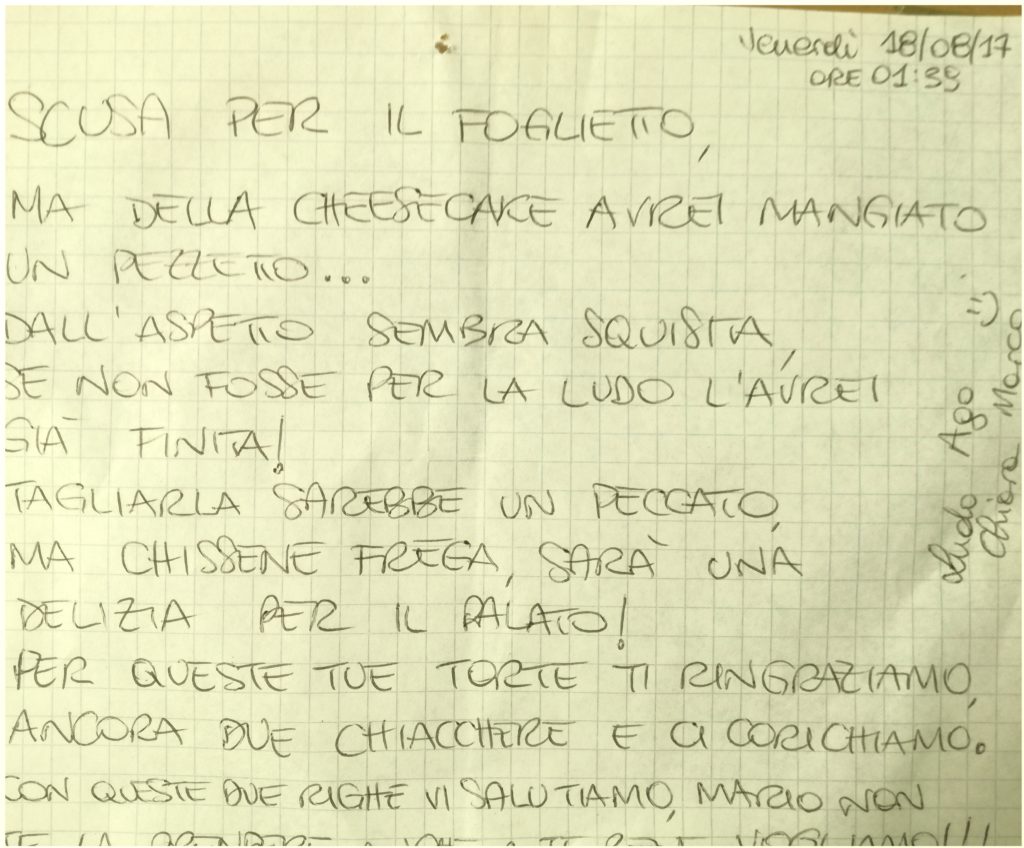 Venerdì 18/08/17
ORE 01:39
SCUSA PER IL FOGLIETTO,
MA DELLA CHEESECAKE AVREI MANGIATO
UN PEZZETTO...
DALL'ASPETTO SEMBRA SQUISITA,
SE NON FOSSE PER LA LUDO L'AVREI
GIÀ FINITA!
TAGLIARLA SAREBBE UN PECCATO,
MA CHISSENE FREGA, SARÀ UNA
DELIZIA PER IL PALATO!
PER QUESTE TUE TORTE TI RINGRAZIAMO,
ANCORA DUE CHIACCHERE E CI CORICHIAMO.
CON QUESTE DUE RIGHE VI SALUTIAMO, MARIO NON
TE LA PRENDERE VOGLIAMO!!!
Ludo Ago :)
Chiara Marco